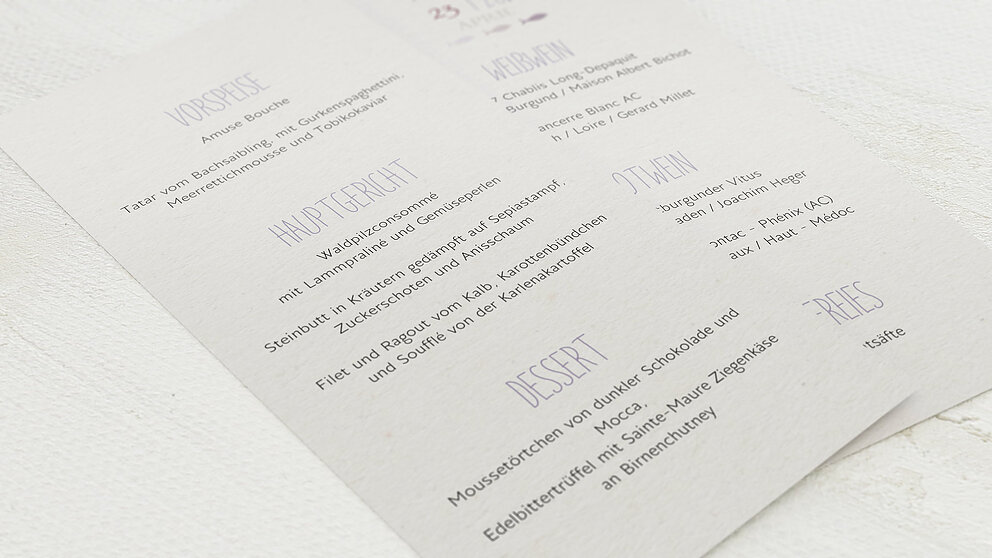 VORSPEISE
Amuse Bouche
Tatar vom Bachsaibling, mit Gurkenspaghettini,
Meerrettichmousse und Tobikokaviar
HAUPTGERICHT
Waldpilzconsommé
mit Lammpraliné und Gemüseperlen
Steinbutt in Kräutern gedämpft auf Sepiastampf,
Zuckerschoten und Anisschaum
Filet und Ragout vom Kalb, Karottenbündchen
und Soufflé von der Karlenakartoffel
DESSERT
Moussetörtchen von dunkler Schokolade und
Mocca,
Edelbittertrüffel mit Sainte-Maure Ziegenkäse
an Birnenchutney
23
WEIßWEIN
7 Chablis Long-Depaquit
Burgund / Maison Albert Bichot
ancerre Blanc AC
h / Loire / Gerard Millet
OTWEIN
burgunder Vitus
aden / Joachim Heger
ontac - Phénix (AC)
aux / Haut - Médoc
FREIES
tsäfte